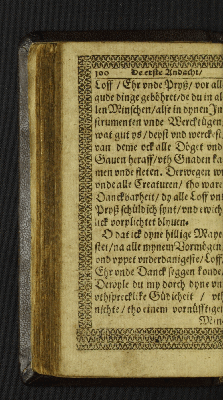 100 De erste Andacht/
Loff / Ehr vnde Pryß / vor all
gude dinge gebohret / de du in al
len Minschen / alse in dynen In
strumenten vnde Wercktügen
wat gut ys / deyst vnd werckest
van deme ock alle Döget vnd
Gauen heraff / vth Gnaden ka
men vnde fleten. Derwegen w
vnde alle Creaturen / tho ware
Danckbarheit / dy alle Loff vnd
Pryß schüldich synt / vnd ewich
lick vorplichtet blyuen.
O dat ick dyne hillige Maye
stet / na alle mynem Vormögen
vnd vppet vnderdanigeste / Loff
Ehr vnde Danck seggen konde
Derwyle du my dorch dyne vn
vthsprecklike Güdicheit / vth
nichte / tho einem vornünfftigen
Min